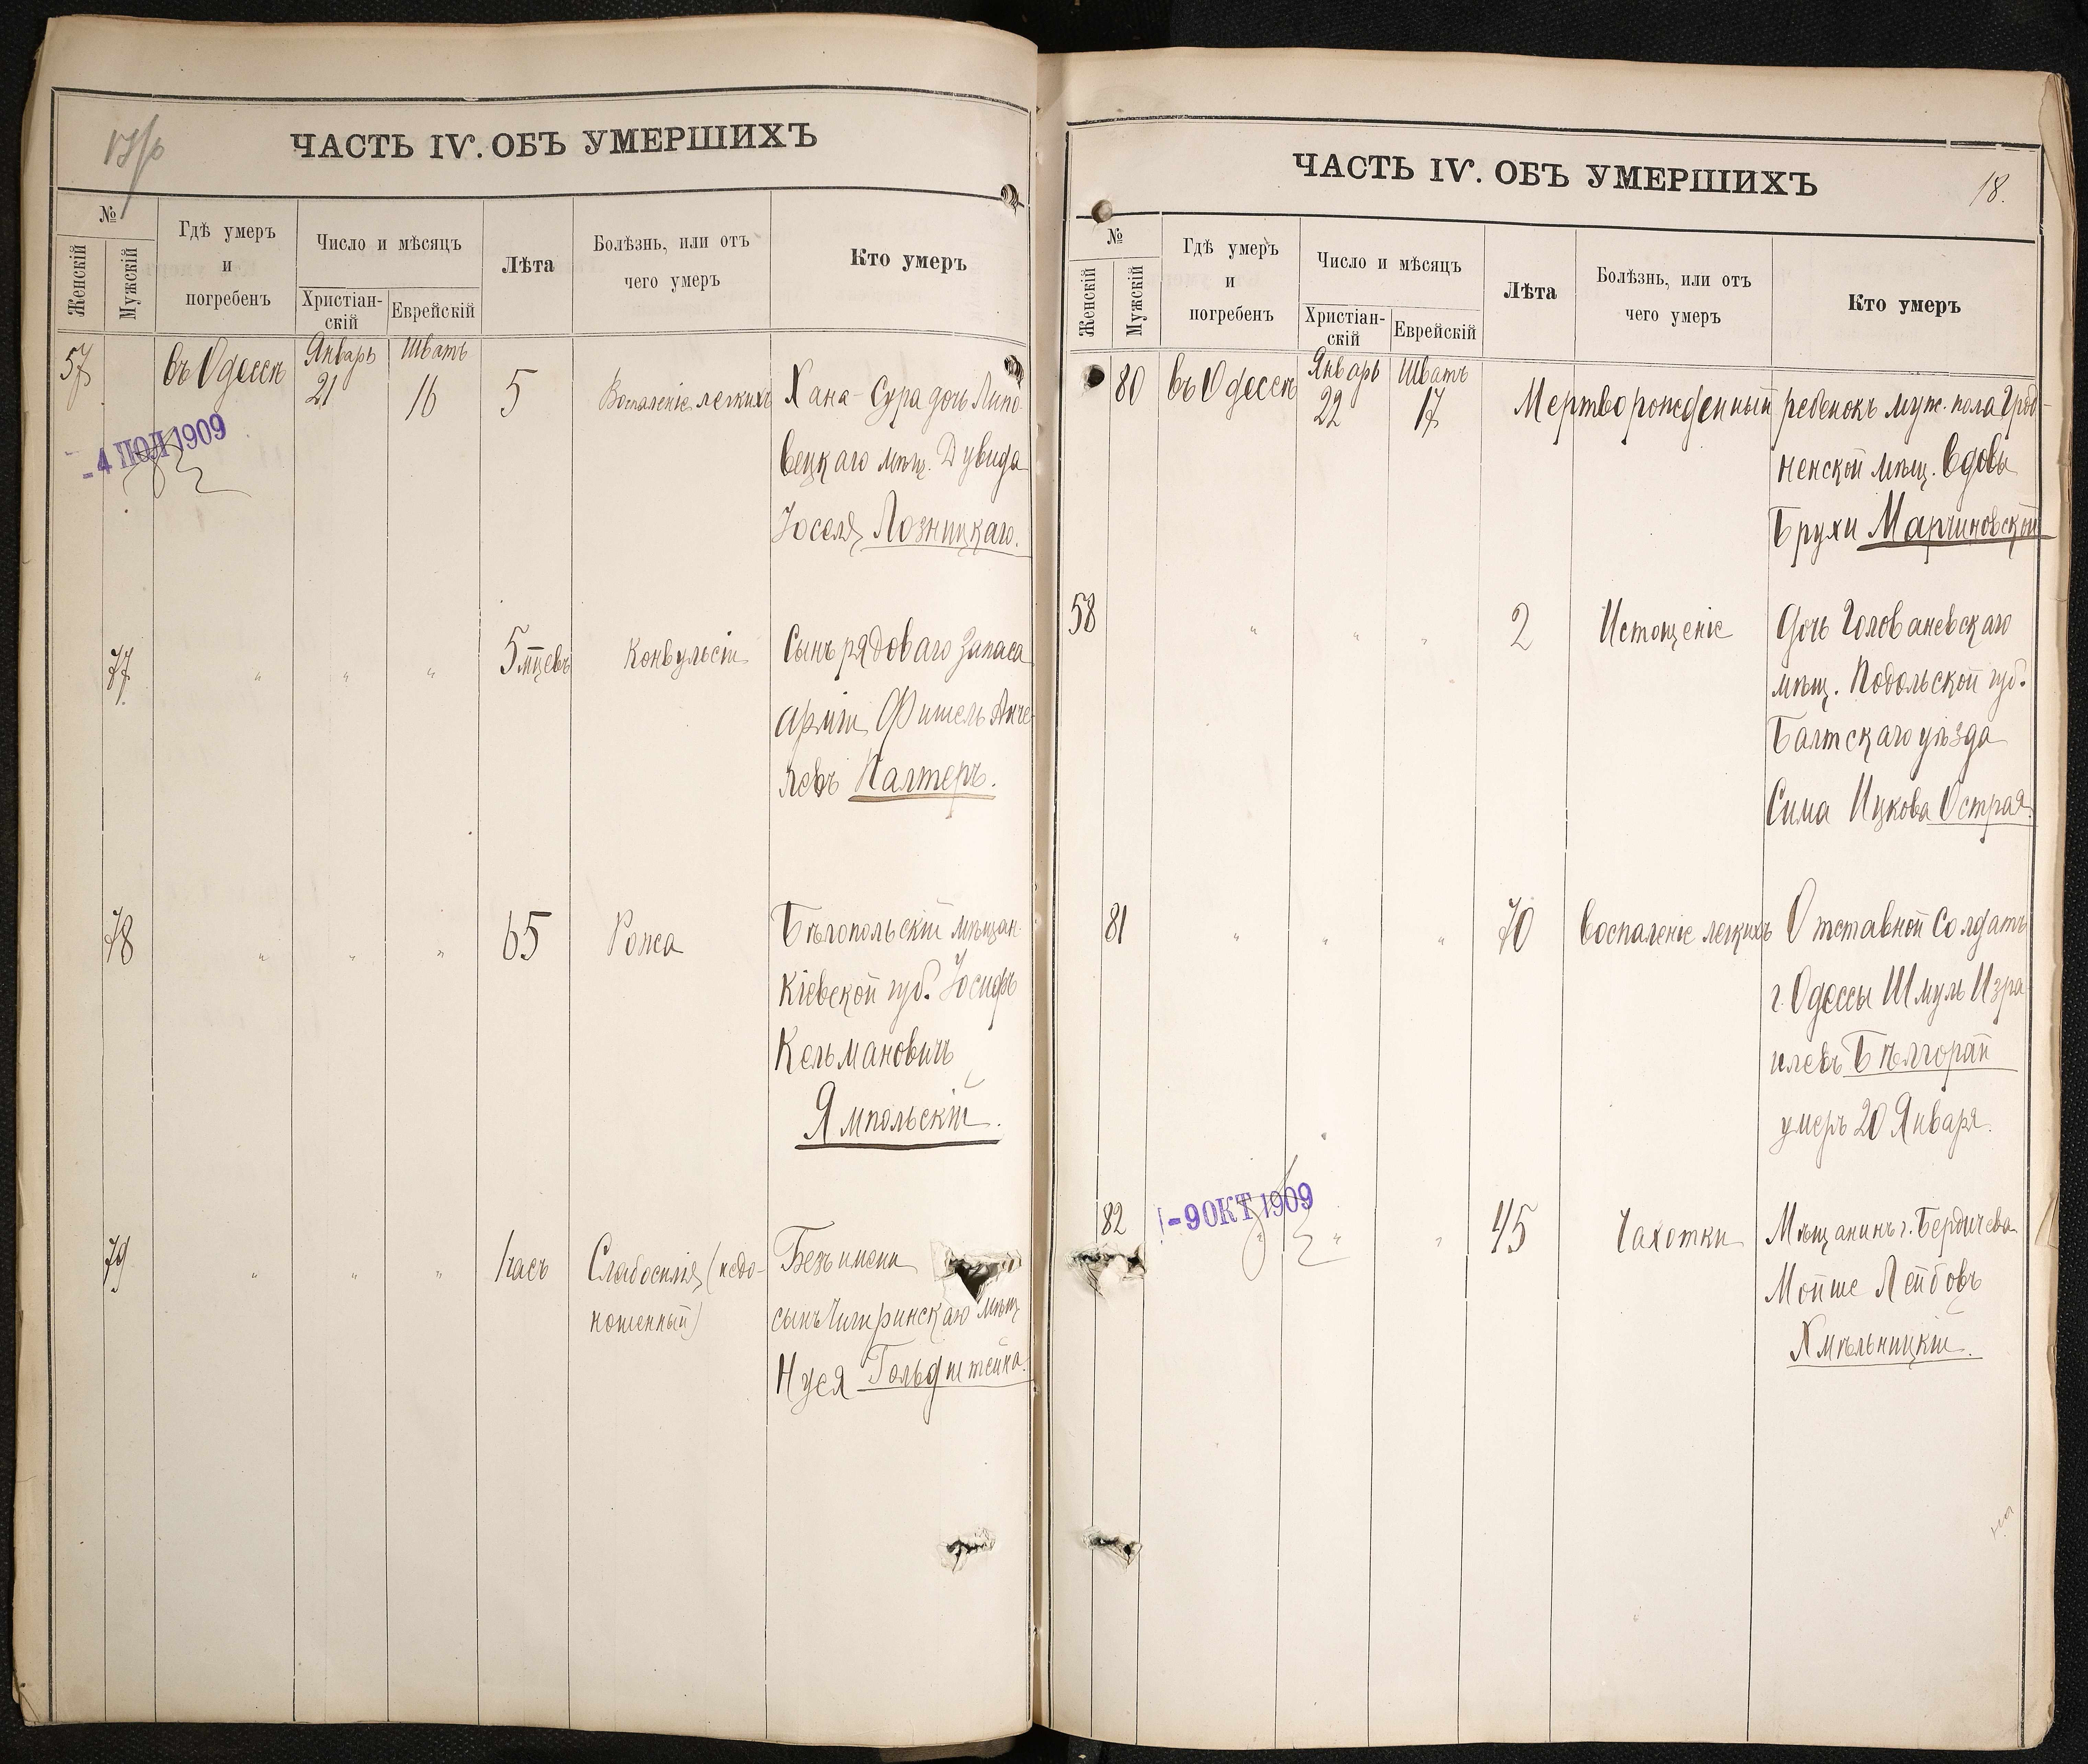 17/об
ЧАСТЬ IV. ОБЪ УМЕРШИХЪ
№
Женскій
Мужскій
Гдѣ умеръ
и
погребенъ
Число и мѣсяцъ
Христіан-
скій
Еврейскій
Лѣта
Болѣзнь, или отъ
чего умеръ
Кто умеръ
57 въ Одессѣ Январь 21 Шватъ 16 5 Воспаленіе легкихъ Хана-Сура дочь Липо-
вецкаго мѣщ. Дувида
Іоселя Лозницкаго.
-4 ІЮЛ 1909
77 " " " 5 мцевъ Конвульсіи Сынъ рядоваго запаса
арміи Фишель Анче-
левъ Палтеръ.
78 " " " 65 Рожа Бѣлопольскій мѣщан.
Кіевской губ. Іосифъ
Кельмановичъ
Ямпольскій.
79 " " " 1 часъ Слабосилія (недо-
ношенный)
Безъ имени
сынъ Чигиринскаго мѣщ.
Нуся Гольдштейна.
ЧАСТЬ IV. ОБЪ УМЕРШИХЪ
18.
№
Женскій
Мужскій
Гдѣ умеръ
и
погребенъ
Число и мѣсяцъ
Христіан-
скій
Еврейскій
Лѣта
Болѣзнь, или отъ
чего умеръ
Кто умеръ
80 въ Одессѣ Январь 22 Шватъ 17 Мертворожденный ребенокъ муж. пола Грод-
ненской мѣщ. вдовы
Брухи Марчиновской
58 " " " 2 Истощеніе дочь Голованевскаго
мѣщ. Подольской губ.
Балтскаго уѣзда
Сима Ицкова Острая.
81 " " " 70 воспаленіе легкихъ Отставной солдатъ
г. Одессы Шмуль Изра-
илевъ Бѣлгорай
умеръ 20 Января.
82 " " " 45 Чахотки Мѣщанинъ г. Бердичева
-9 ОКТ 1909
Мойше Лейбовъ
Хмѣльницкій.